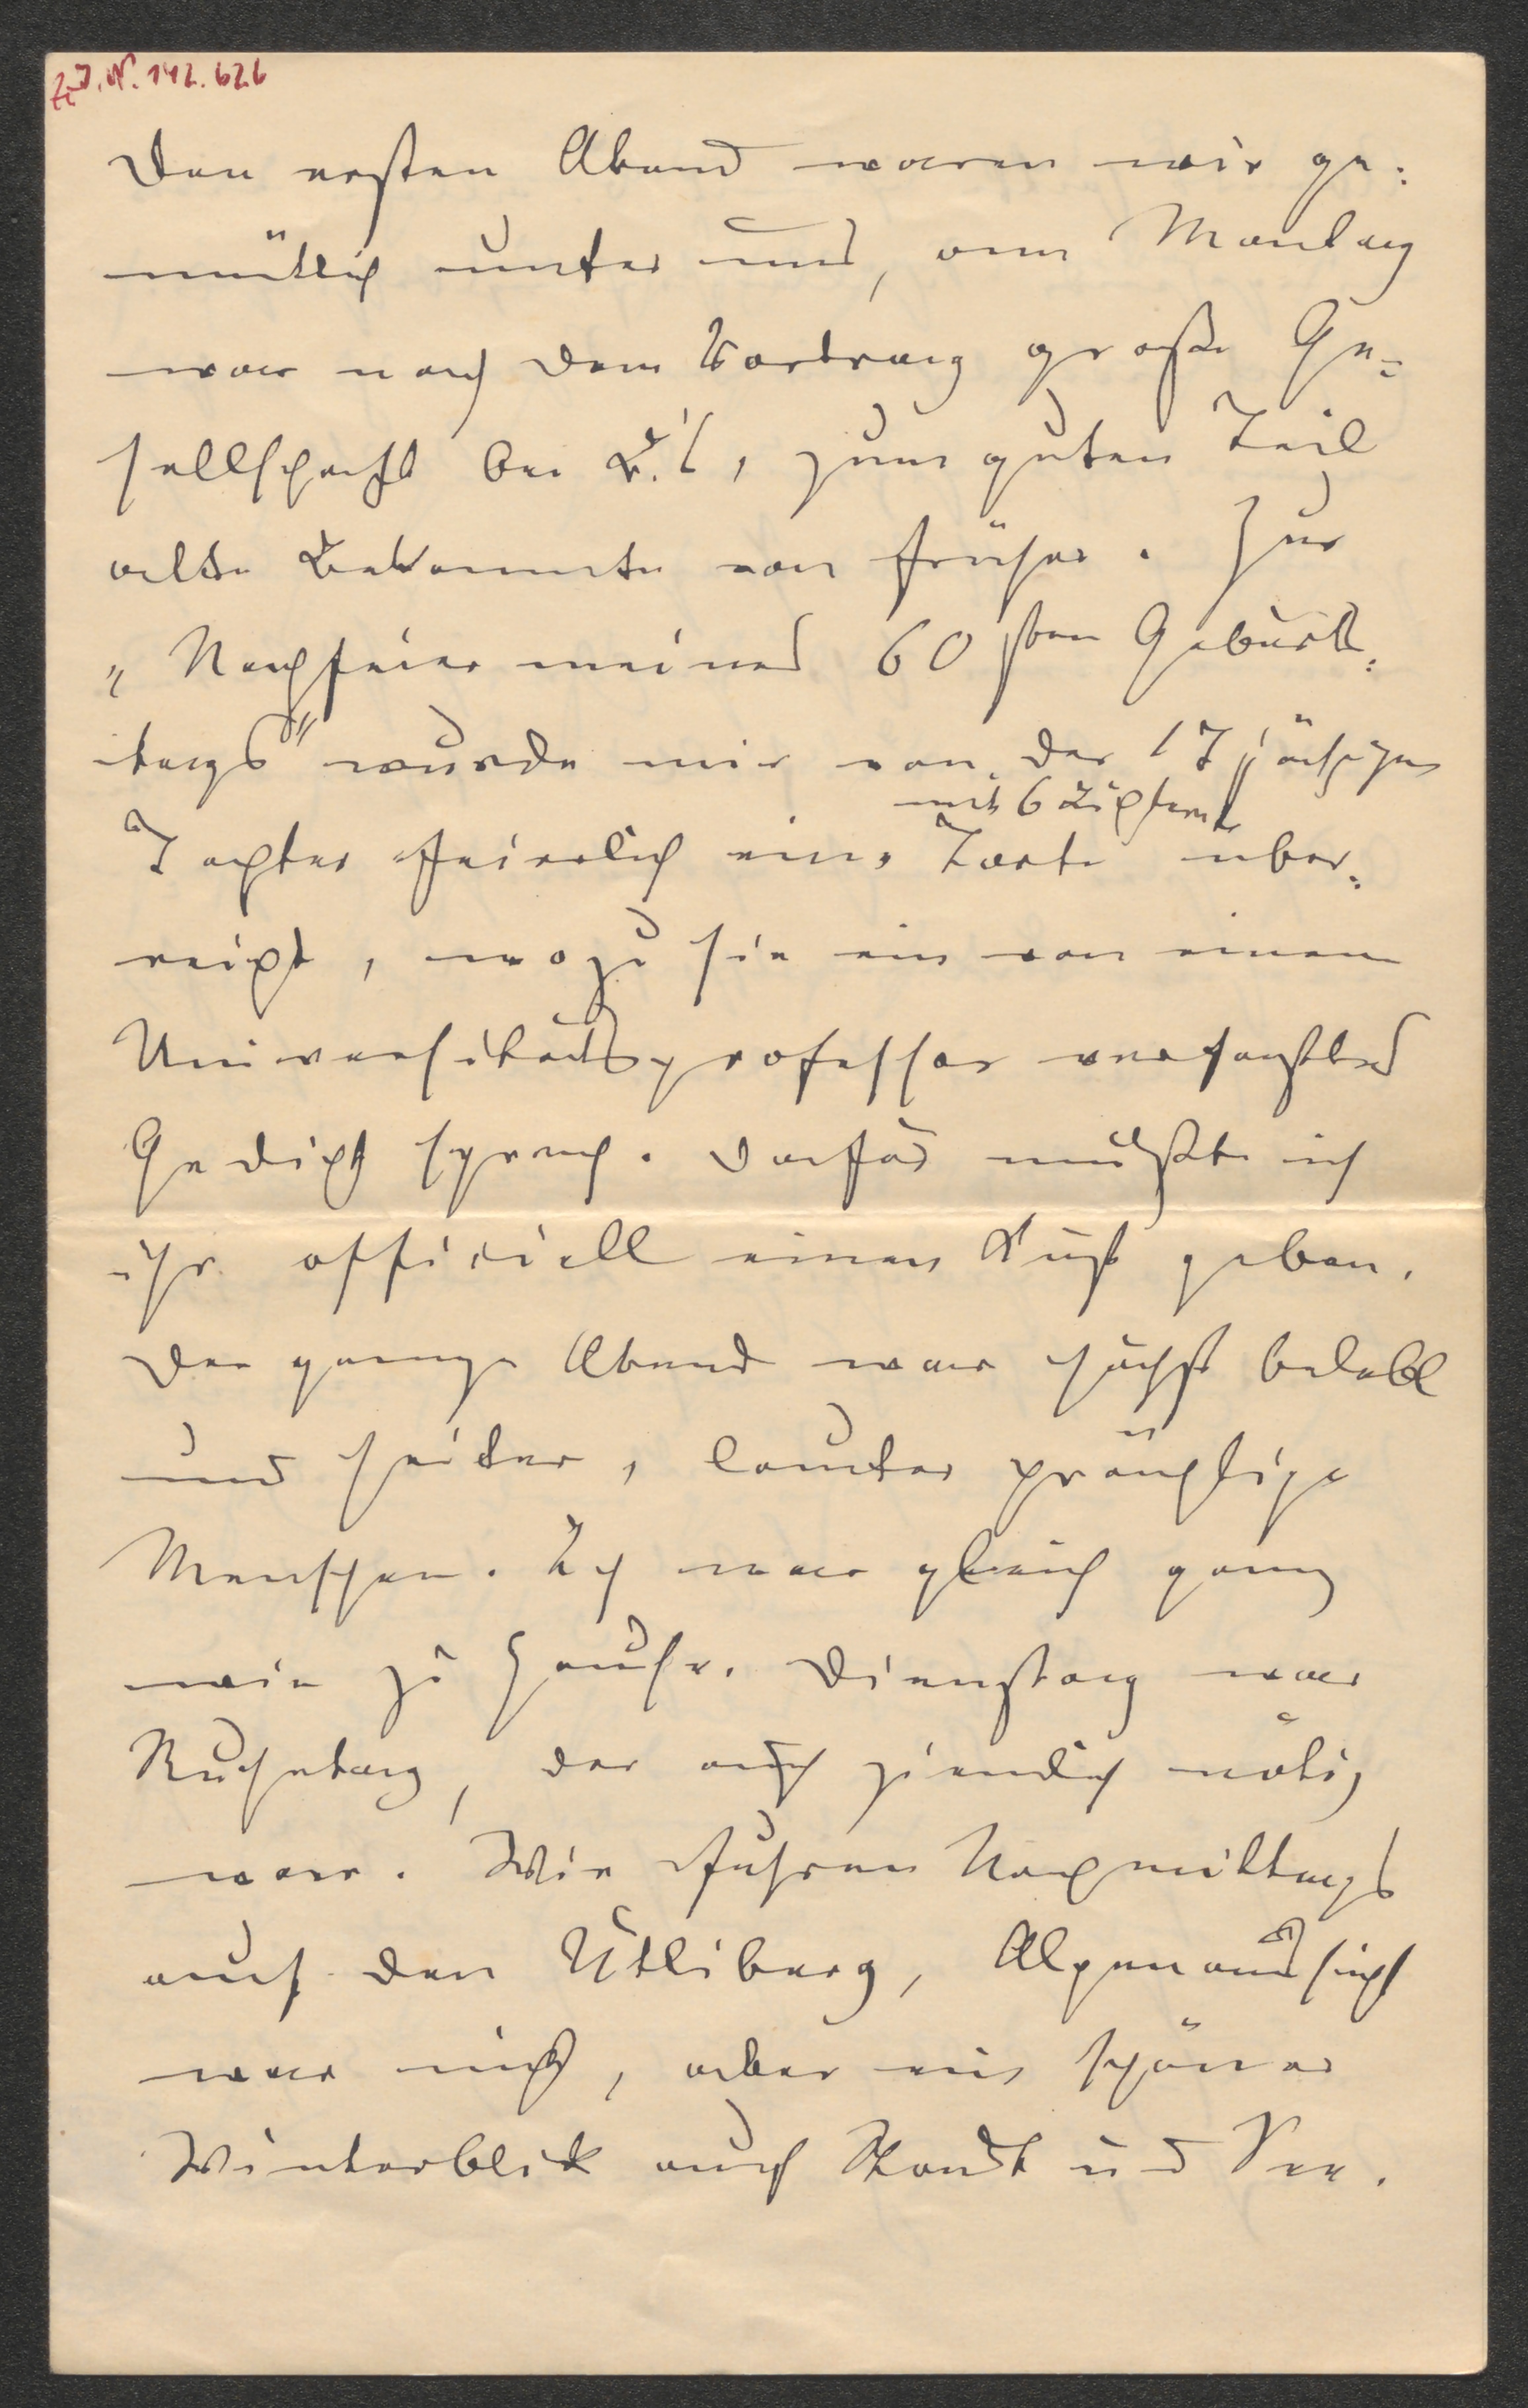 Z. J. N. 142.626
Den ersten Abend waren wir ge-
mütlich unter uns, am Montag
war nach dem Vortrag große Ge-
sellschaft bei B.'s, zum guten Teil
alte Bekannte von früher. Zur
„Nachfeier meines 60sten Geburts-
tags" wurde mir von der 17jährigen
mit 6 Lichtern
Tochter feierlich eine Torte über-
reicht, wozu sie ein von einem
Universitätsprofessor verfaßtes
Gedicht sprach. Dafür mußte ich
ihr officiell einen Kuß geben.
Der ganze Abend war höchst belebt
und heiter, lauter prächtige
Menschen. Ich war gleich ganz
wie zu Hause. Dienstag war
Ruhetag, der auch ziemlich nötig
war. Wir fuhren Nachmittags
auf den Ütliberg, Alpenaussicht
war nicht, aber ein schöner
Winterblick auf Stadt und See.